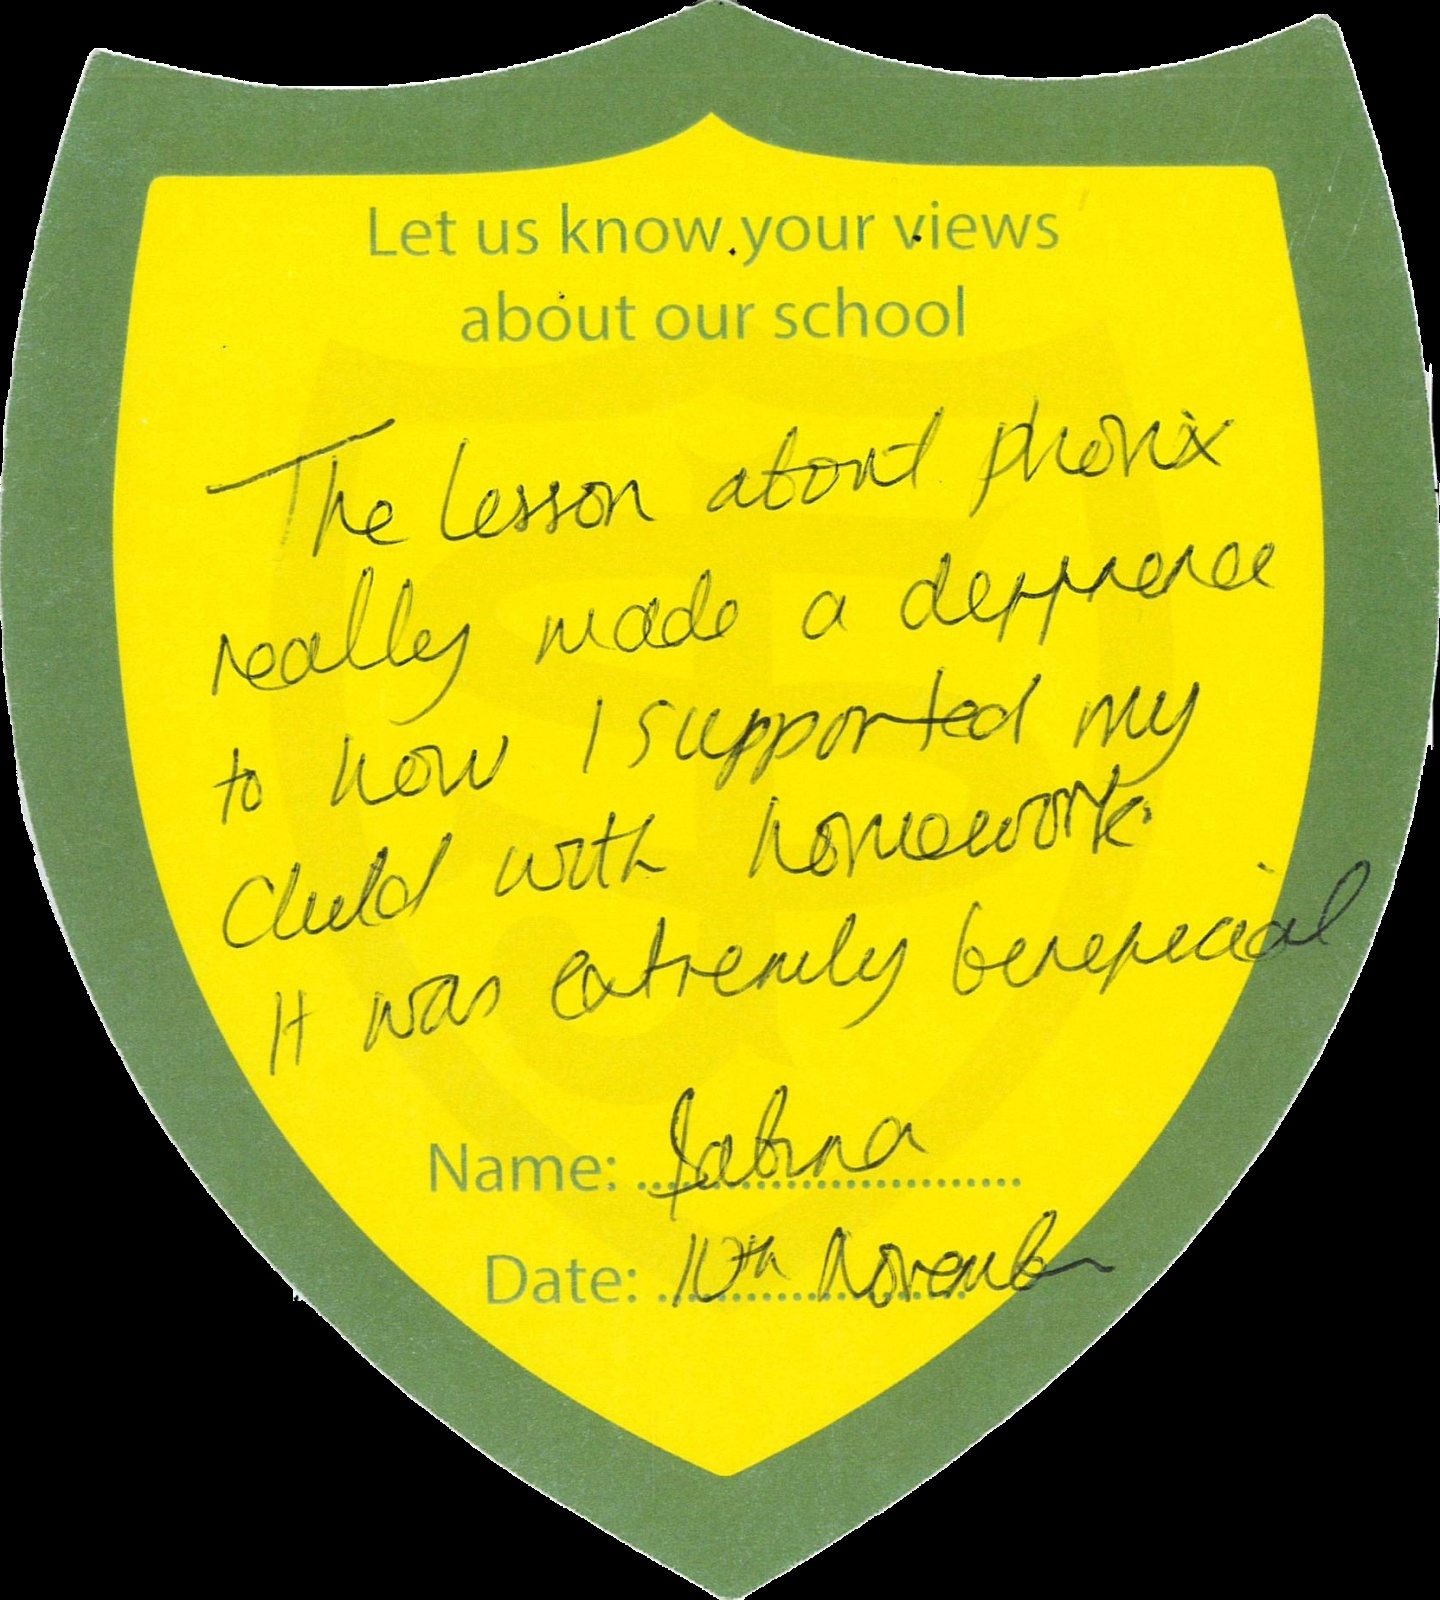 Let us know your views
about our school
The lesson about phonix
really made a depprence
to how I supported my
child with homework.
It was extremely benepicial
Name: Sabina
Date: 10th November